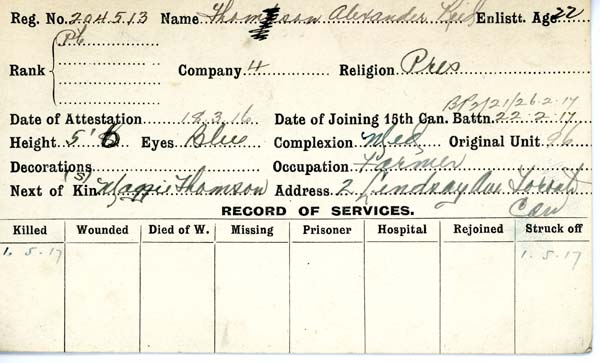 Reg. No. 204513 Name Thomson Alexander Reid Enlistt. Age 22
Rank Pte
Company 4 Religion Pres
B.P.2/21/26-2-17
Date of Attestation 18.3.16 Date of Joining 15th Can. Battn. 22-2-17
Height 5' 6 Eyes Blue Complexion Med Original Unit 96
Decorations Occupation Farmer
Next of Kin (S) Maggie Thomson Address 2 Lindsay Ave Toronto
Can
RECORD OF SERVICES.
Killed Wounded Died of W. Missing Prisoner Hospital Rejoined Struck off
1.5.17 1.5.17